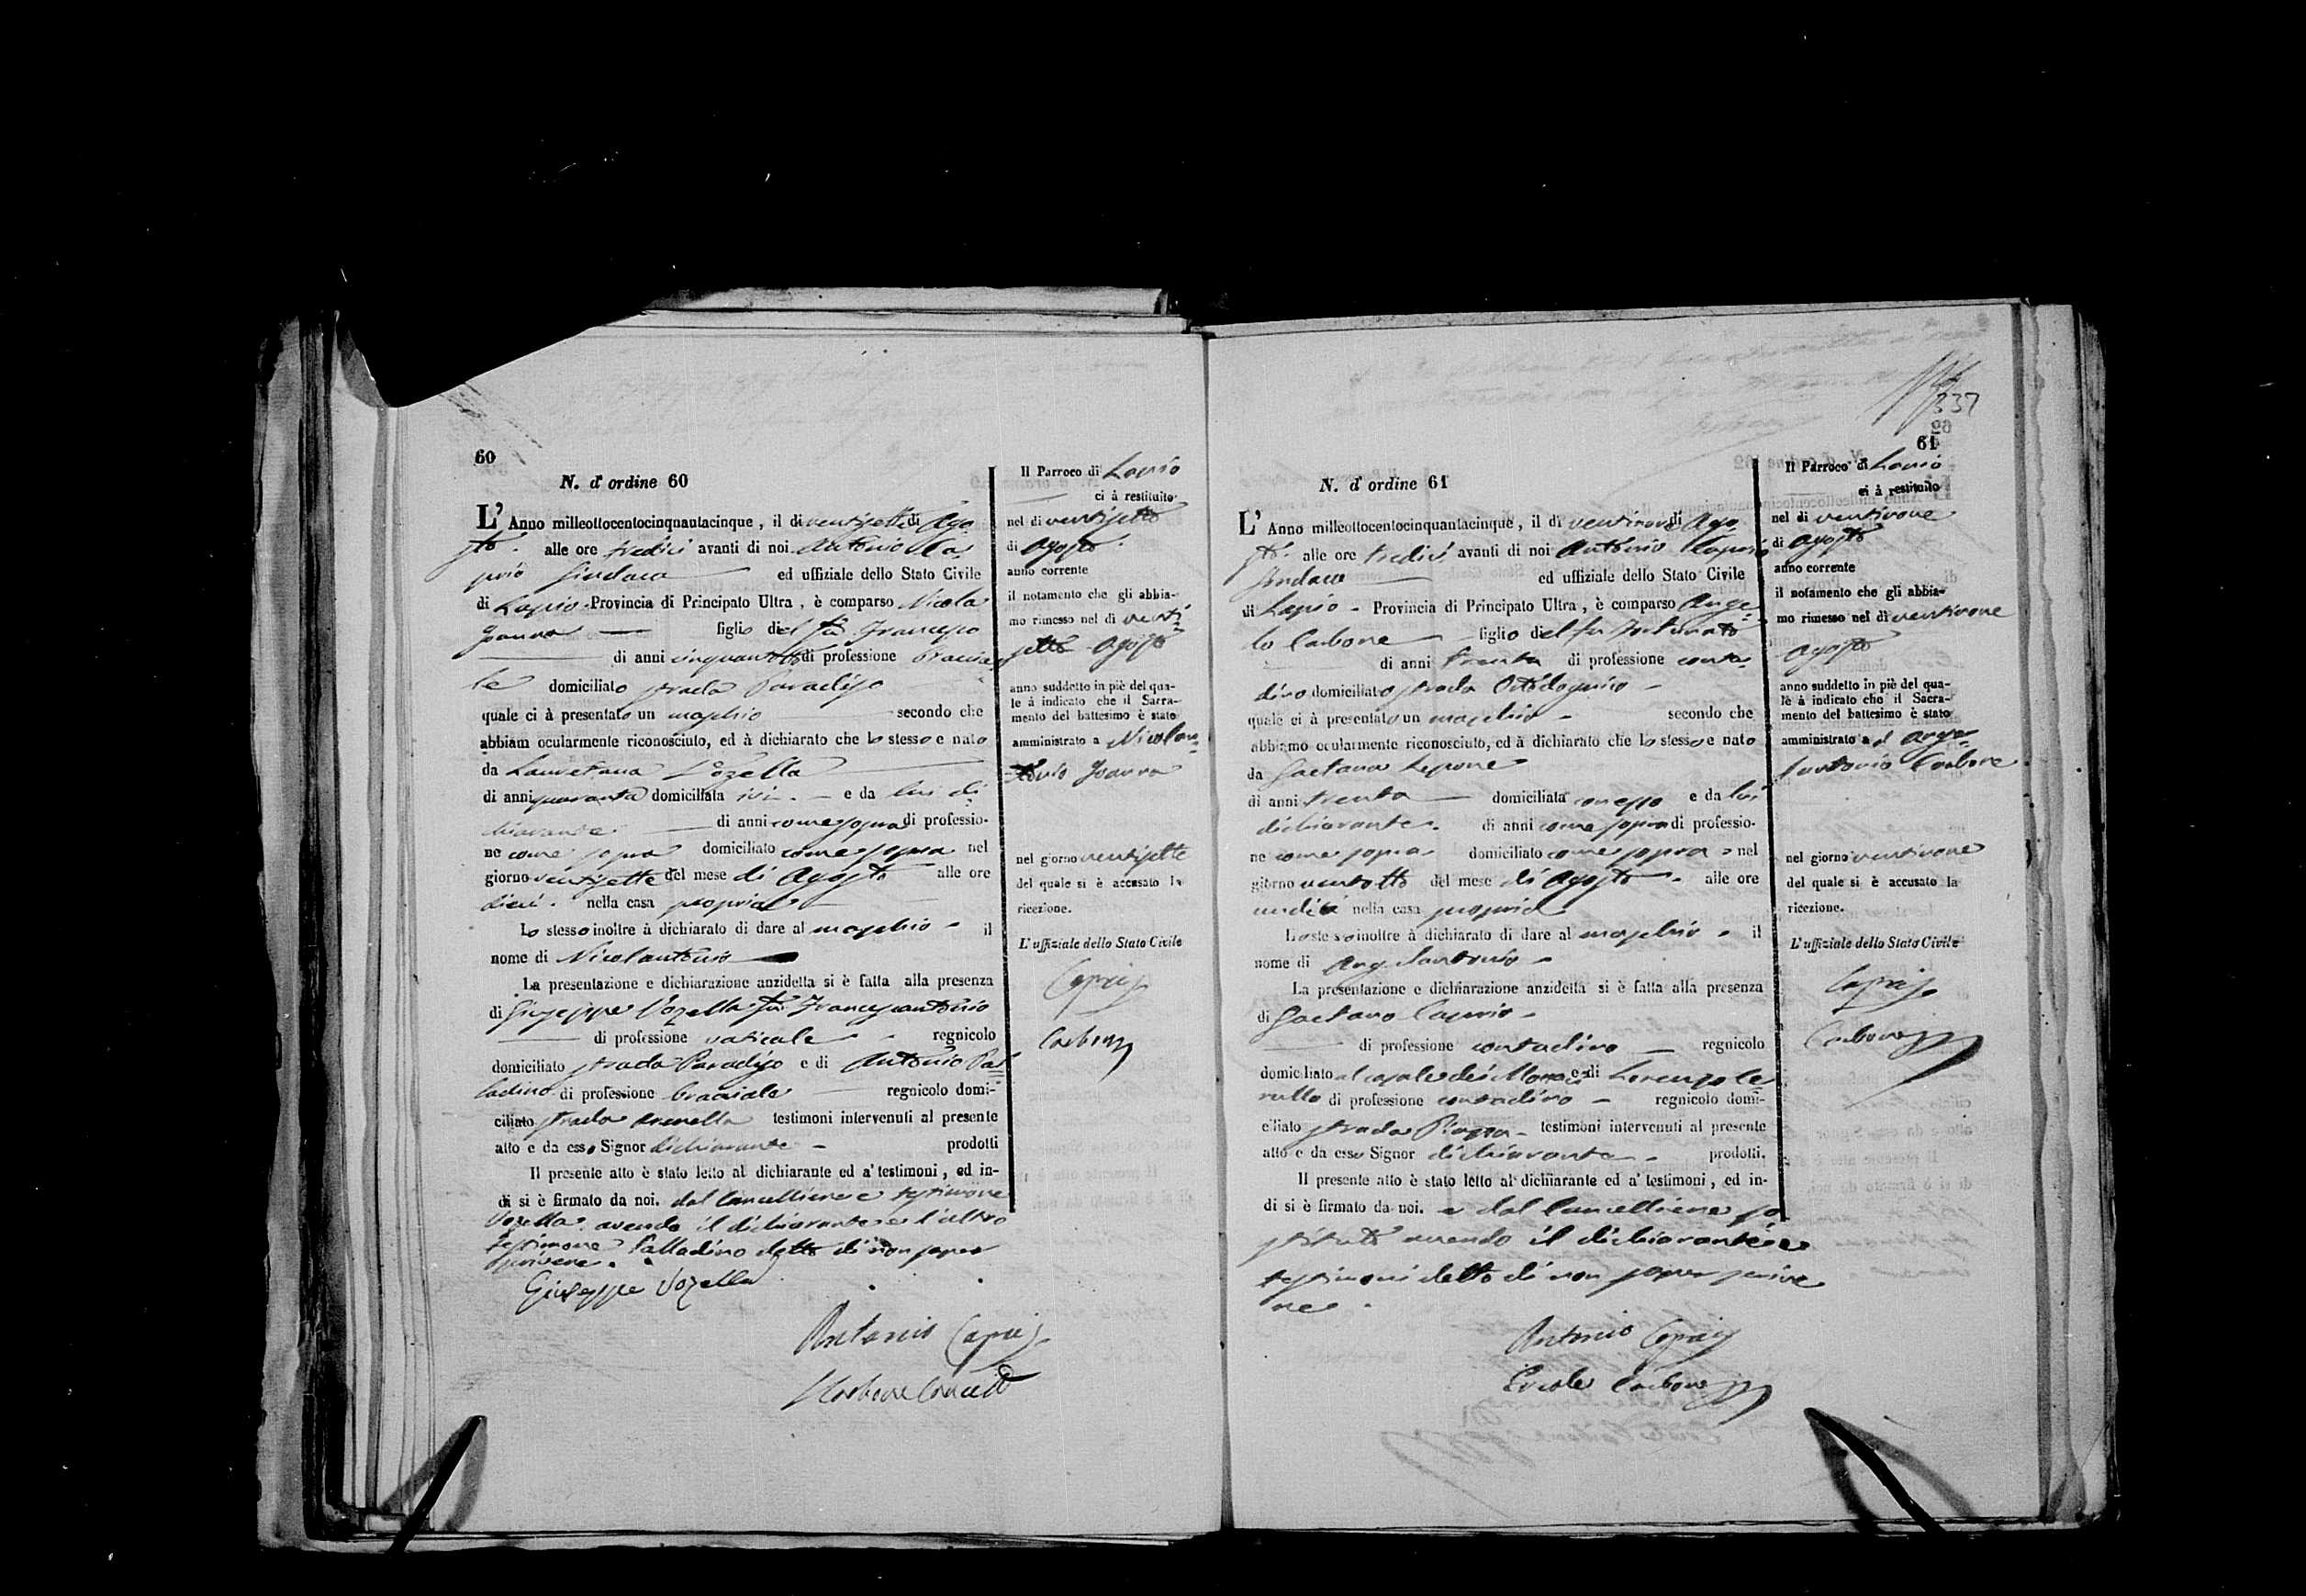 60
N. d'ordine 60
L'Anno millottocentocinquantacinque, il dì ventisette di Ago-
sto. alle ore tredici avanti di noi Antonio Ca-
prio Sindaco ed uffiziale dello Stato Civile
di Lapio Provincia di Principato Ultra, è comparso Nicola
Joanna figlio del fu Francesco
di anni cinquantotto di professione braccia-
le domiciliato strada Paradiso
quale ci à presentato un maschio secondo che
abbiam ocularmente riconosciuto, ed à dichiarato che lo stesso e nato
da Lauretana Vozella
di anni quaranta domiciliata ivi e da lui di
chiarante di anni come sopra di professio-
ne come sopra domiciliato come sopra nel
giorno ventisette del mese di Agosto alle ore
dieci. nella casa propria
Lo stesso inoltre à dichiarato di dare al maschio il
nome di Nicolantonio
La presentazione e dichiarazione anzidetta si è fatta alla presenza
di Giuseppe Vozella fu Francescantonio
di professione vaticale regnicolo
domiciliato strada Paradiso e di Antonio Pal
ladino di professione bracciale regnicolo domi-
ciliato strada testimoni intervenuti al presente
atto e da esso Signor dichiarante prodotti
Il presente atto è stato letto al dichiarante ed a' testimoni, ed in-
di si è firmato da noi. dal Cancelliere e testimone
Vozella avendo il dichiarante e l'altro
testimone Palladino detto di non saper
scrivere.
Giuseppe Vozella
Antonio Caprio
Carbone
Il Parroco di Lapio
ci à restituito
nel dì ventisette
di Agosto
anno corrente
il notamento che gli abbia-
mo rimesso nel dì venti-
sette Agosto
anno suddetto in piè del qua-
le à indicato che il Sacra-
mento del battesimo è stato
amministrato a Nicolan-
tonio Joanna
nel giorno ventisette
del quale si è accusato la
ricezione.
L'uffiziale dello Stato Civile
Caprio
Carbone
337
61
N. d'ordine 61
L'Anno millottocentocinquantacinque, il dì ventinove di Ago-
sto. alle ore tredici avanti di noi Antonio Caprio
Sindaco ed uffiziale dello Stato Civile
di Lapio - Provincia di Principato Ultra, è comparso Ange-
lo Carbone figlio del fu Fortunato
di anni trenta di professione conta-
dino domiciliato strada
quale ci à presentato un maschio - secondo che
abbiamo ocularmente riconosciuto, ed à dichiarato che lo stesso e nato
da Gaetana Lepore
di anni trenta domiciliata con esso e da lui
dichiarante. di anni come sopra di professio-
ne come sopra domiciliato come sopra nel
giorno ventotto del mese di Agosto alle ore
undici nella casa propria
Lo stesso inoltre à dichiarato di dare al maschio il
nome di Angelantonio
La presentazione e dichiarazione anzidetta si è fatta alla presenza
di Gaetano Caprio
di professione contadino regnicolo
domiciliato al casale dei Monaci e di Lorenzo Ce-
rullo di professione contadino regnicolo domi-
ciliato strada Piazza testimoni intervenuti al presente
atto e da esso Signor dichiarante prodotti.
Il presente atto è stato letto al dichiarante ed a' testimoni, ed in-
di si è firmato da noi. e dal Cancelliere so
stituto avendo il dichiarante e
testimoni detto di non saper scrive
re.
Antonio Caprio
Ercole Carbone
Il Parroco di Lapio
ci à restituito
nel dì ventinove
di Agosto
anno corrente
il notamento che gli abbia-
mo rimesso nel dì ventinove
Agosto
anno suddetto in piè del qua-
le à indicato che il Sacra-
mento del battesimo è stato
amministrato a d Ange-
lantonio Carbone
nel giorno ventinove
del quale si è accusato la
ricezione.
L'uffiziale dello Stato Civile
Caprio
Carbone